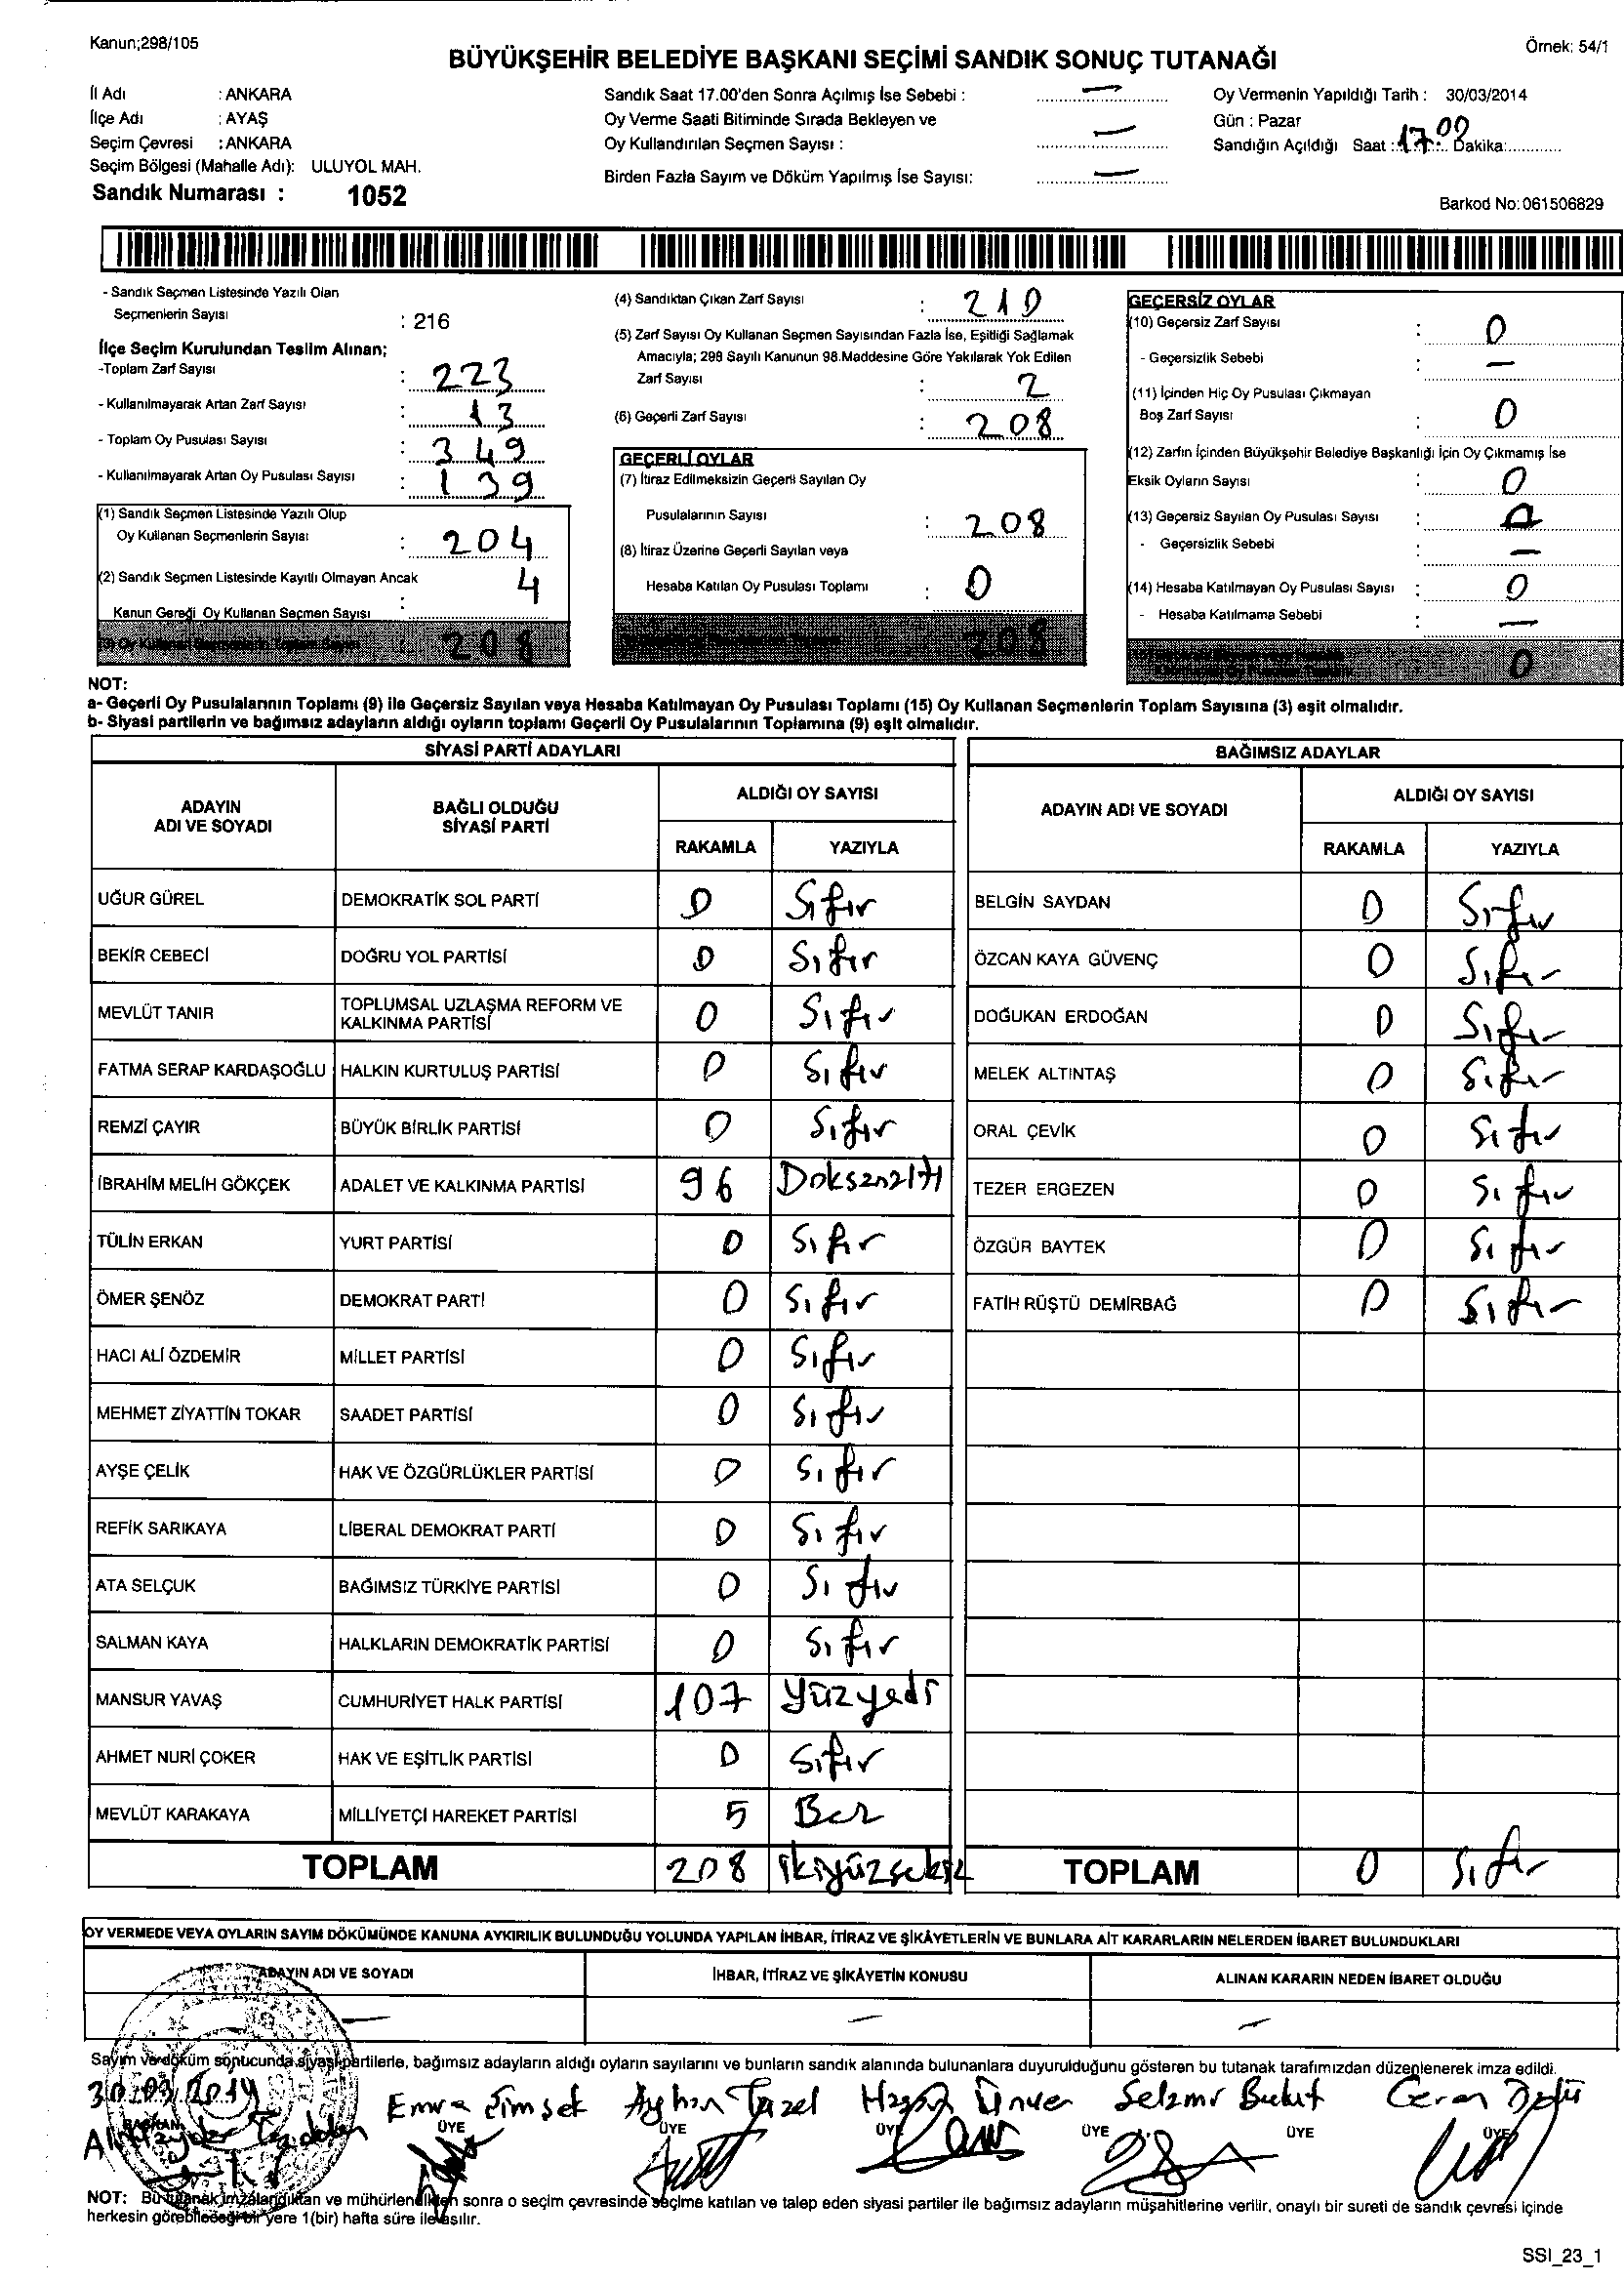 Kanun;298/105
Örnek: 54/1
BÜYÜKŞEHİR BELEDİYE BAŞKANI SEÇİMİ SANDIK SONUÇ TUTANAĞI
İl Adı : ANKARA
İlçe Adı : AYAŞ
Seçim Çevresi : ANKARA
Seçim Bölgesi (Mahalle Adı): ULUYOL MAH.
Sandık Numarası : 1052
Sandık Saat 17.00'den Sonra Açılmış İse Sebebi : —
Oy Verme Saati Bitiminde Sırada Bekleyen ve
Oy Kullandırılan Seçmen Sayısı : —
Birden Fazla Sayım ve Döküm Yapılmış İse Sayısı: —
Oy Vermenin Yapıldığı Tarih : 30/03/2014
Gün : Pazar
Sandığın Açıldığı Saat : 17.00 Dakika:
Barkod No: 061506829
- Sandık Seçmen Listesinde Yazılı Olan
Seçmenlerin Sayısı : 216
İlçe Seçim Kurulundan Teslim Alınan;
-Toplam Zarf Sayısı : 223
- Kullanılmayarak Artan Zarf Sayısı : 13
- Toplam Oy Pusulası Sayısı : 349
- Kullanılmayarak Artan Oy Pusulası Sayısı : 139
(1) Sandık Seçmen Listesinde Yazılı Olup
Oy Kullanan Seçmenlerin Sayısı : 204
(2) Sandık Seçmen Listesinde Kayıtlı Olmayan Ancak
Kanun Gereği Oy Kullanan Seçmen Sayısı : 4
(3) Oy Kullanan Seçmenlerin Toplam Sayısı : 208
(4) Sandıktan Çıkan Zarf Sayısı : 210
(5) Zarf Sayısı Oy Kullanan Seçmen Sayısından Fazla İse, Eşitliği Sağlamak
Amacıyla; 298 Sayılı Kanunun 98.Maddesine Göre Yakılarak Yok Edilen
Zarf Sayısı : 2
(6) Geçerli Zarf Sayısı : 208
GEÇERLİ OYLAR
(7) İtiraz Edilmeksizin Geçerli Sayılan Oy
Pusulalarının Sayısı : 208
(8) İtiraz Üzerine Geçerli Sayılan veya
Hesaba Katılan Oy Pusulası Toplamı : 0
208
GEÇERSİZ OYLAR
(10) Geçersiz Zarf Sayısı : 0
- Geçersizlik Sebebi : —
(11) İçinden Hiç Oy Pusulası Çıkmayan
Boş Zarf Sayısı : 0
(12) Zarfın İçinden Büyükşehir Belediye Başkanlığı İçin Oy Çıkmamış İse
Eksik Oyların Sayısı : 0
(13) Geçersiz Sayılan Oy Pusulası Sayısı : 0
- Geçersizlik Sebebi : —
(14) Hesaba Katılmayan Oy Pusulası Sayısı : 0
- Hesaba Katılmama Sebebi : —
0
NOT:
a- Geçerli Oy Pusulalarının Toplamı (9) ile Geçersiz Sayılan veya Hesaba Katılmayan Oy Pusulası Toplamı (15) Oy Kullanan Seçmenlerin Toplam Sayısına (3) eşit olmalıdır.
b- Siyasi partilerin ve bağımsız adayların aldığı oyların toplamı Geçerli Oy Pusulalarının Toplamına (9) eşit olmalıdır.
SİYASİ PARTİ ADAYLARI
ADAYIN ADI VE SOYADI BAĞLI OLDUĞU SİYASİ PARTİ ALDIĞI OY SAYISI
RAKAMLA YAZIYLA
UĞUR GÜREL DEMOKRATİK SOL PARTİ 0 Sıfır
BEKİR CEBECİ DOĞRU YOL PARTİSİ 0 Sıfır
MEVLÜT TANIR TOPLUMSAL UZLAŞMA REFORM VE KALKINMA PARTİSİ 0 Sıfır
FATMA SERAP KARDAŞOĞLU HALKIN KURTULUŞ PARTİSİ 0 Sıfır
REMZİ ÇAYIR BÜYÜK BİRLİK PARTİSİ 0 Sıfır
İBRAHİM MELİH GÖKÇEK ADALET VE KALKINMA PARTİSİ 96 Doksanaltı
TÜLİN ERKAN YURT PARTİSİ 0 Sıfır
ÖMER ŞENÖZ DEMOKRAT PARTİ 0 Sıfır
HACI ALİ ÖZDEMİR MİLLET PARTİSİ 0 Sıfır
MEHMET ZİYATTİN TOKAR SAADET PARTİSİ 0 Sıfır
AYŞE ÇELİK HAK VE ÖZGÜRLÜKLER PARTİSİ 0 Sıfır
REFİK SARIKAYA LİBERAL DEMOKRAT PARTİ 0 Sıfır
ATA SELÇUK BAĞIMSIZ TÜRKİYE PARTİSİ 0 Sıfır
SALMAN KAYA HALKLARIN DEMOKRATİK PARTİSİ 0 Sıfır
MANSUR YAVAŞ CUMHURİYET HALK PARTİSİ 107 Yüzyedi
AHMET NURİ ÇOKER HAK VE EŞİTLİK PARTİSİ 0 Sıfır
MEVLÜT KARAKAYA MİLLİYETÇİ HAREKET PARTİSİ 5 Beş
TOPLAM 208 ikiyüzsekiz
BAĞIMSIZ ADAYLAR
ADAYIN ADI VE SOYADI ALDIĞI OY SAYISI
RAKAMLA YAZIYLA
BELGİN SAYDAN 0 Sıfır
ÖZCAN KAYA GÜVENÇ 0 Sıfır
DOĞUKAN ERDOĞAN 0 Sıfır
MELEK ALTINTAŞ 0 Sıfır
ORAL ÇEVİK 0 Sıfır
TEZER ERGEZEN 0 Sıfır
ÖZGÜR BAYTEK 0 Sıfır
FATİH RÜŞTÜ DEMİRBAĞ 0 Sıfır
TOPLAM 0 Sıfır
OY VERMEDE VEYA OYLARIN SAYIM DÖKÜMÜNDE KANUNA AYKIRILIK BULUNDUĞU YOLUNDA YAPILAN İHBAR, İTİRAZ VE ŞİKÂYETLERİN VE BUNLARA AİT KARARLARIN NELERDEN İBARET BULUNDUKLARI
ADAYIN ADI VE SOYADI İHBAR, İTİRAZ VE ŞİKÂYETİN KONUSU ALINAN KARARIN NEDEN İBARET OLDUĞU
— — —
Sayım ve döküm sonucunda siyasi partilerle, bağımsız adayların aldığı oyların sayılarını ve bunların sandık alanında bulunanlara duyurulduğunu gösteren bu tutanak tarafımızdan düzenlenerek imza edildi.
30.03.2014
Emre Şimşek Ayhan Hasan Ünver Ceren
BAŞKAN ÜYE ÜYE ÜYE ÜYE ÜYE ÜYE
NOT: Bu tutanak imzalandıktan ve mühürlendikten sonra o seçim çevresinde seçime katılan ve talep eden siyasi partiler ile bağımsız adayların müşahitlerine verilir, onaylı bir sureti de sandık çevresi içinde
herkesin görebileceği bir yere 1(bir) hafta süre ile asılır.
SSI_23_1